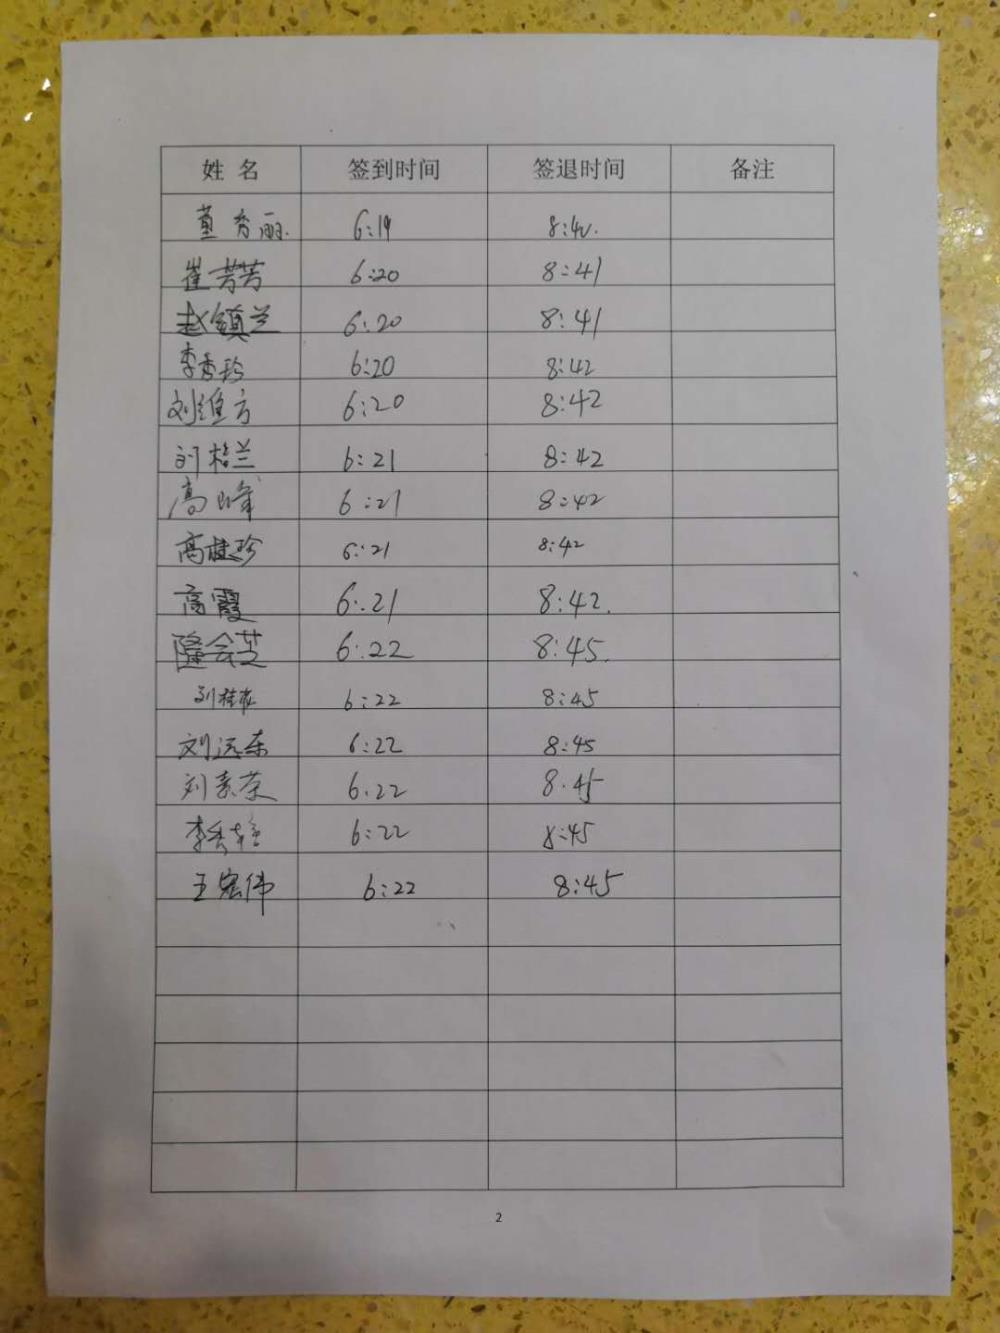 姓 名 签到时间 签退时间 备注
董秀丽. 6:19 8:40.
崔芳芳 6:20 8:41
赵镇兰 6:20 8:41
李秀珍 6:20 8:42
刘维方 6:20 8:42
刘格兰 6:21 8:42
高峰 6:21 8:42
高桂珍 6:21 8:42
高霞 6:21 8:42.
隆会芝 6:22 8:45.
刘桂 6:22 8:45
刘远东 6:22 8:45
刘素荣 6.22 8.45
李秀 6:22 8:45
王宏伟 6:22 8:45
2